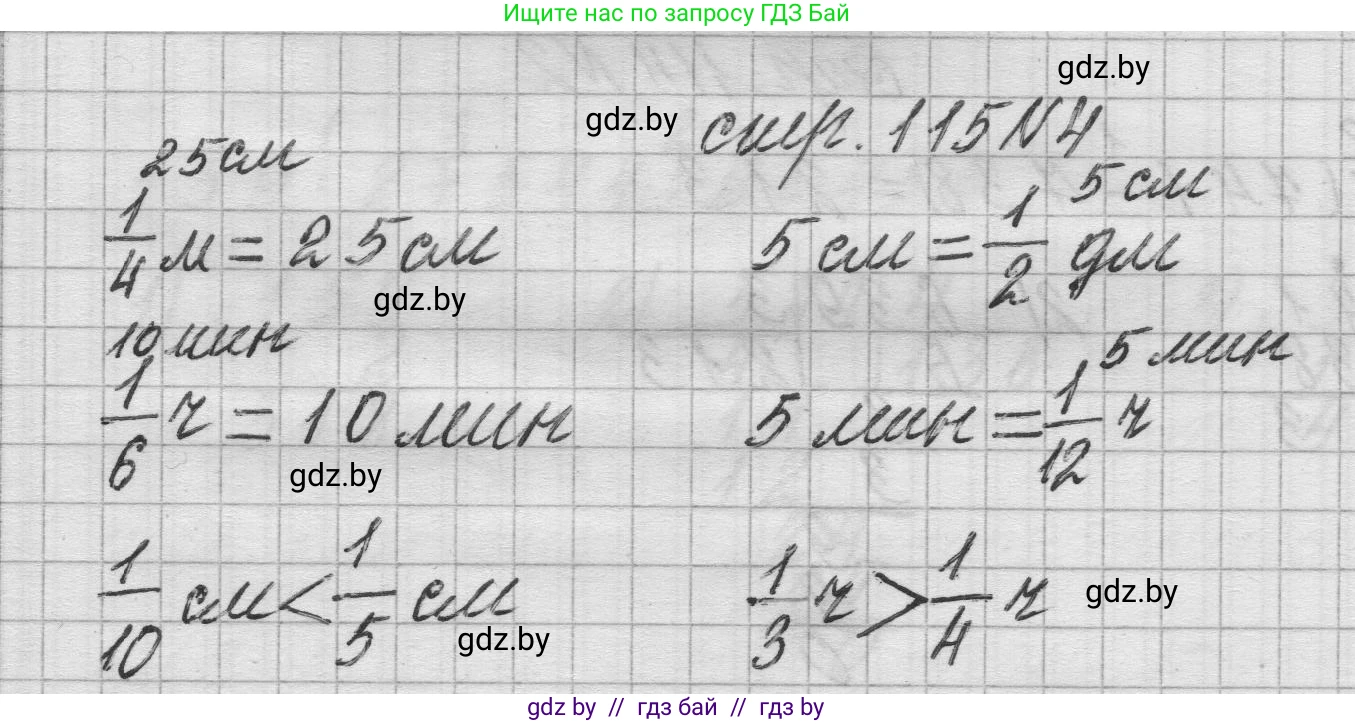 Ищите нас по запросу ГДЗ Бай
gdz.by
gdz.by стр. 115 N4
25 см
5 см
1/4 м = 25 см
5 см = 1/2 дм
gdz.by
10 мин
5 мин
1/6 ч = 10 мин
5 мин = 1/12 ч
gdz.by
1/10 см < 1/5 см
1/3 ч > 1/4 ч
gdz.by
gdz.by
gdz.by // гдз бай // гдз by